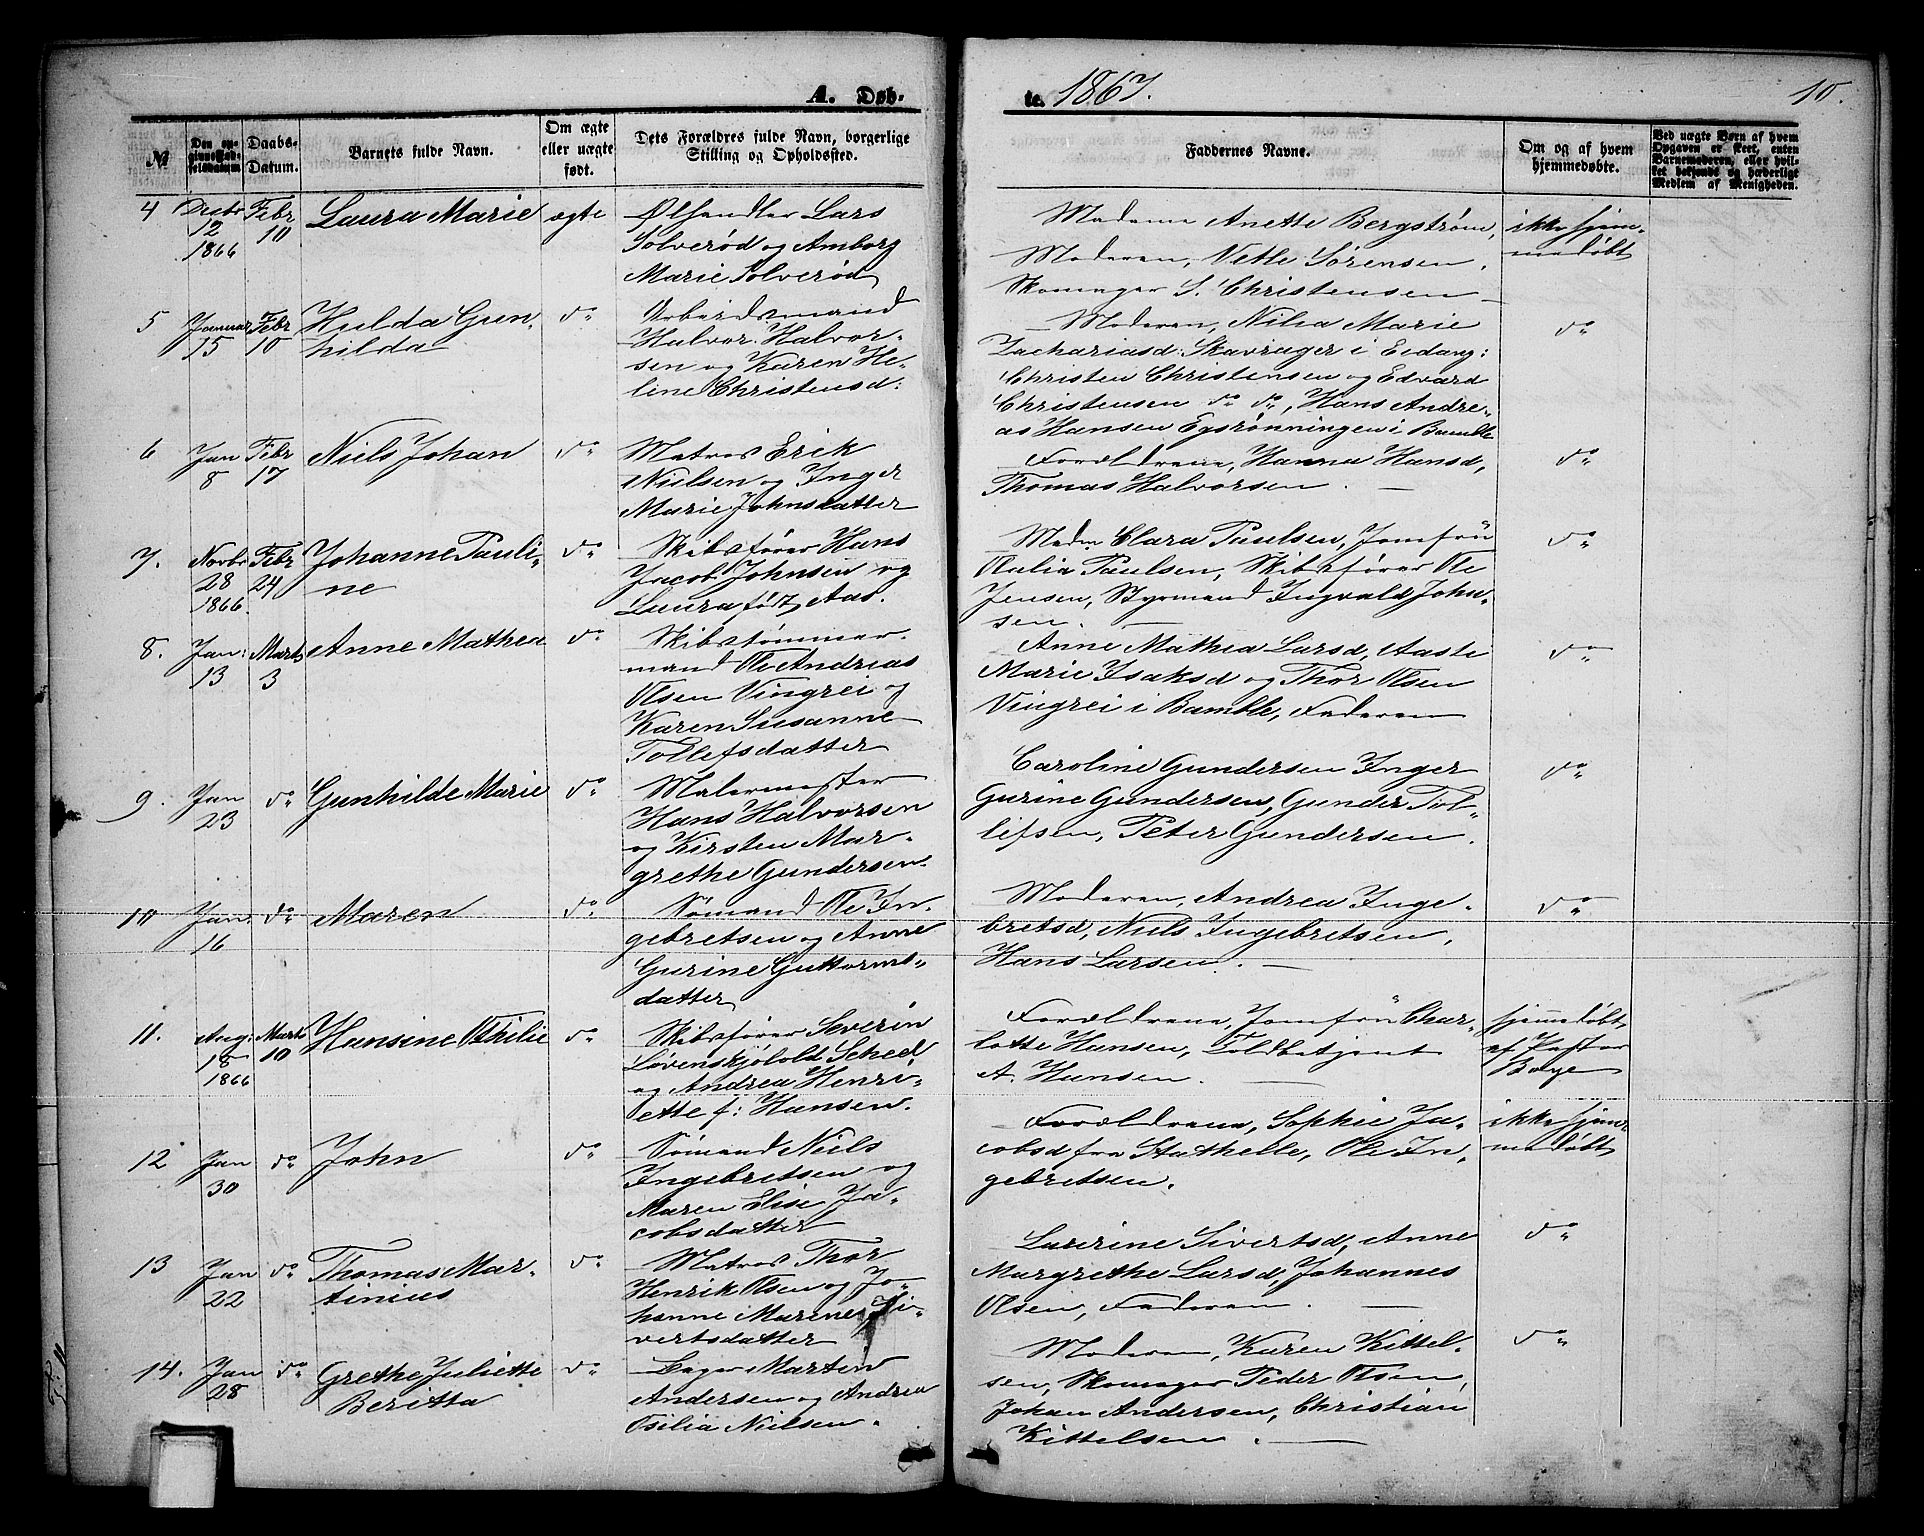 A. Døb-
te. 1867.
10.
№
Den opgivne Fødselsdatum.
Daabs-Datum.
Barnets fulde Navn.
Om ægte eller uægte født.
Dets Forældres fulde Navn, borgerlige Stilling og Opholdssted.
Faddernes Navne.
Om og af hvem hjemmedøbte.
Ved uægte Børn af hvem Opgaven er skeet, enten Barnemoderen, eller hvilket bekjendt og hæderligt Medlem af Menigheden.
4 Decbr 12 1866 Febr 10 Laura Marie ægte
Ølhandler Lars
Solverød og Amborg
Marie Solverød
Madame Anette Bergstrøm,
Moderen, Netle Sørensen.
Skomager S. Christensen
ikke hjem-
medøbt
5 Januar 15 Febr 10 Hulda Gun-
hilda do
Arbeidsmand
Halvor Halvor-
sen og Karen He-
line Christensd:
Moderen, Nilia Marie
Zachariasd: Skavrager i Eidang:
Christen Christensen og Edvard
Christensen do do, Hans Andre-
as Hansen Egsrønningen i Bamble
do
6 Jan 8 Febr 17 Niels Johan do
Matros Erik
Nielsen og Inger
Marie Johnsdatter
Forældrene, Hanna Hansd,
Thomas Halvorsen.
do
7. Novbr 28 1866 Febr 24 Johanne Pauli-
ne do
Skibsfører Hans
Jacob Johnsen og
Laura født Aas.
Madm Clara Paulsen, Jomfru
Olalia Paulsen, Skibsfører Ole
Jensen, Styrmand Ingvald John-
sen.
do
8. Jan: 13 Marts 3 Anne Mathea do
Skibstømmer-
mand Ole Andreas
Olsen Vingrei og
Karen Susanne
Tollefsdatter
Anne Mathea Larsd, Aaste
Marie Isaksd og Thor Olsen
Vingrei i Bamble, Faderen
do
9. Jan 23 do Gunhilde Marie do
Malermester
Hans Halvorsen
og Kirsten Mar-
grethe Gundersen.
Caroline Gundersen Inger
Gurine Gundersen, Gunder Tol-
lefsen, Peter Gundersen.
do
10 Jan. 16 do Maren do
Sømand Ole In-
gebretsen og Anne
Gurine Guttorms-
datter
Moderen, Andrea Inge-
bretsd, Niels Ingebretsen,
Hans Larsen.
do
11. Aug: 18 1866 Marts 10 Hansine Othilie do
Skibsfører Severin
Løvenskjolold Sched,
og Andrea Henri-
ette f: Hansen.
Forældrene, Jomfru Char-
lotte Hansen, Toldbetjent
A. Hansen.
hjemedøbt
af Pastor
Boye
12 Jan 30 do John do
Sømand Niels
Ingebretsen og
Maren Elise Ja-
cobsdatter
Forældrene, Sophie Ja-
cobsd fra Stathelle, Ole In-
gebretsen.
ikke hjem-
medøbt
13 Jan 22 do Thomas Mar-
tinius do
Matros Thor
Henrik Olsen og Jo-
hanne Marene Si-
vertsdatter
Lavrine Sivertsd, Anne
Margrethe Larsd, Johannes
Olsen, Faderen.
do
14. Jan 28 do Grethe Juliette
Beritta do
Bager Marten
Andersen og Andrea
Osilia Nielsen.
Moderen, Karen Kittel-
sen, Skomager Peder Olsen,
Johan Andersen, Christian
Kittelsen.
do